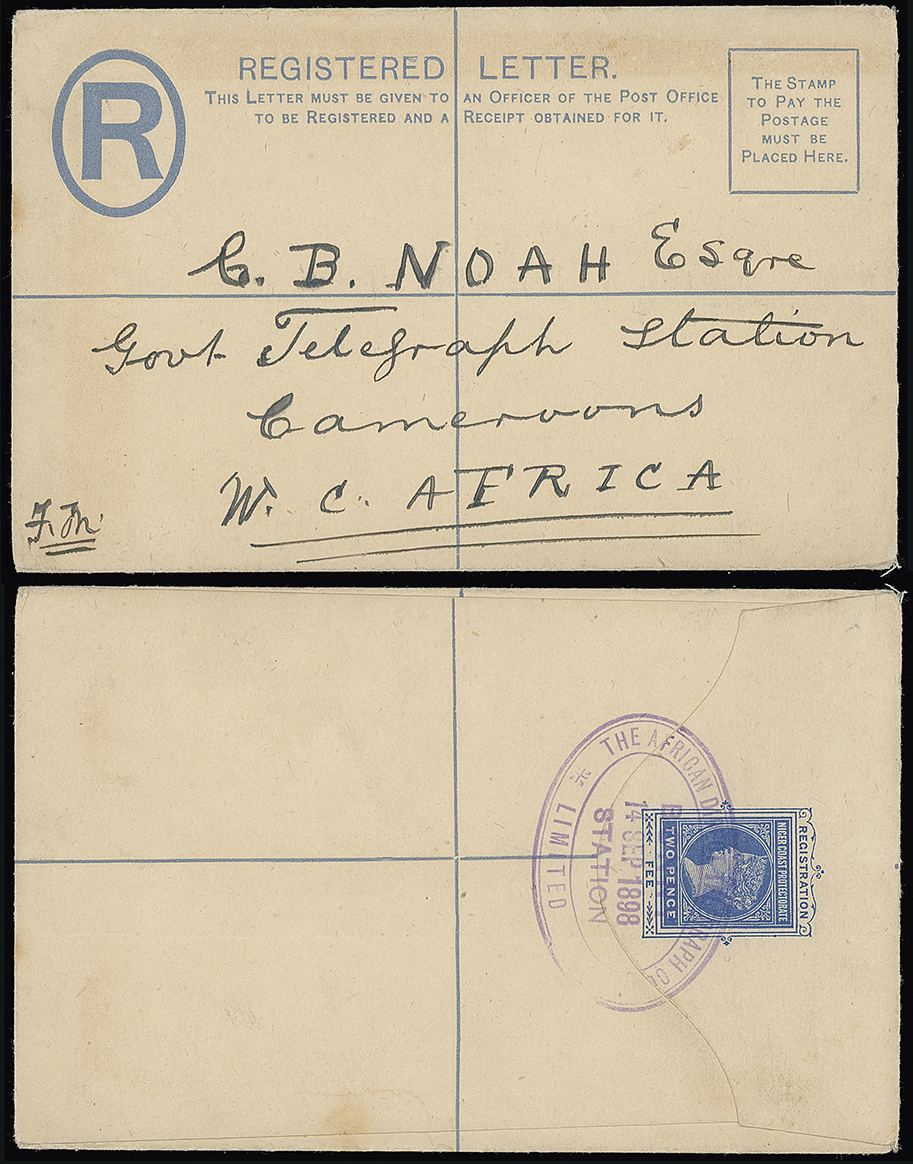 R
REGISTERED LETTER.
THIS LETTER MUST BE GIVEN TO AN OFFICER OF THE POST OFFICE
TO BE REGISTERED AND A RECEIPT OBTAINED FOR IT.
THE STAMP
TO PAY THE
POSTAGE
MUST BE
PLACED HERE.
C. B. NOAH Esqre
Govt Telegraph Station
Cameroons
W. C. AFRICA
THE AFRICAN
LIMITED
14 SEP 1898
STATION
REGISTRATION
NIGER COAST PROTECTORATE
TWO PENCE
FEE